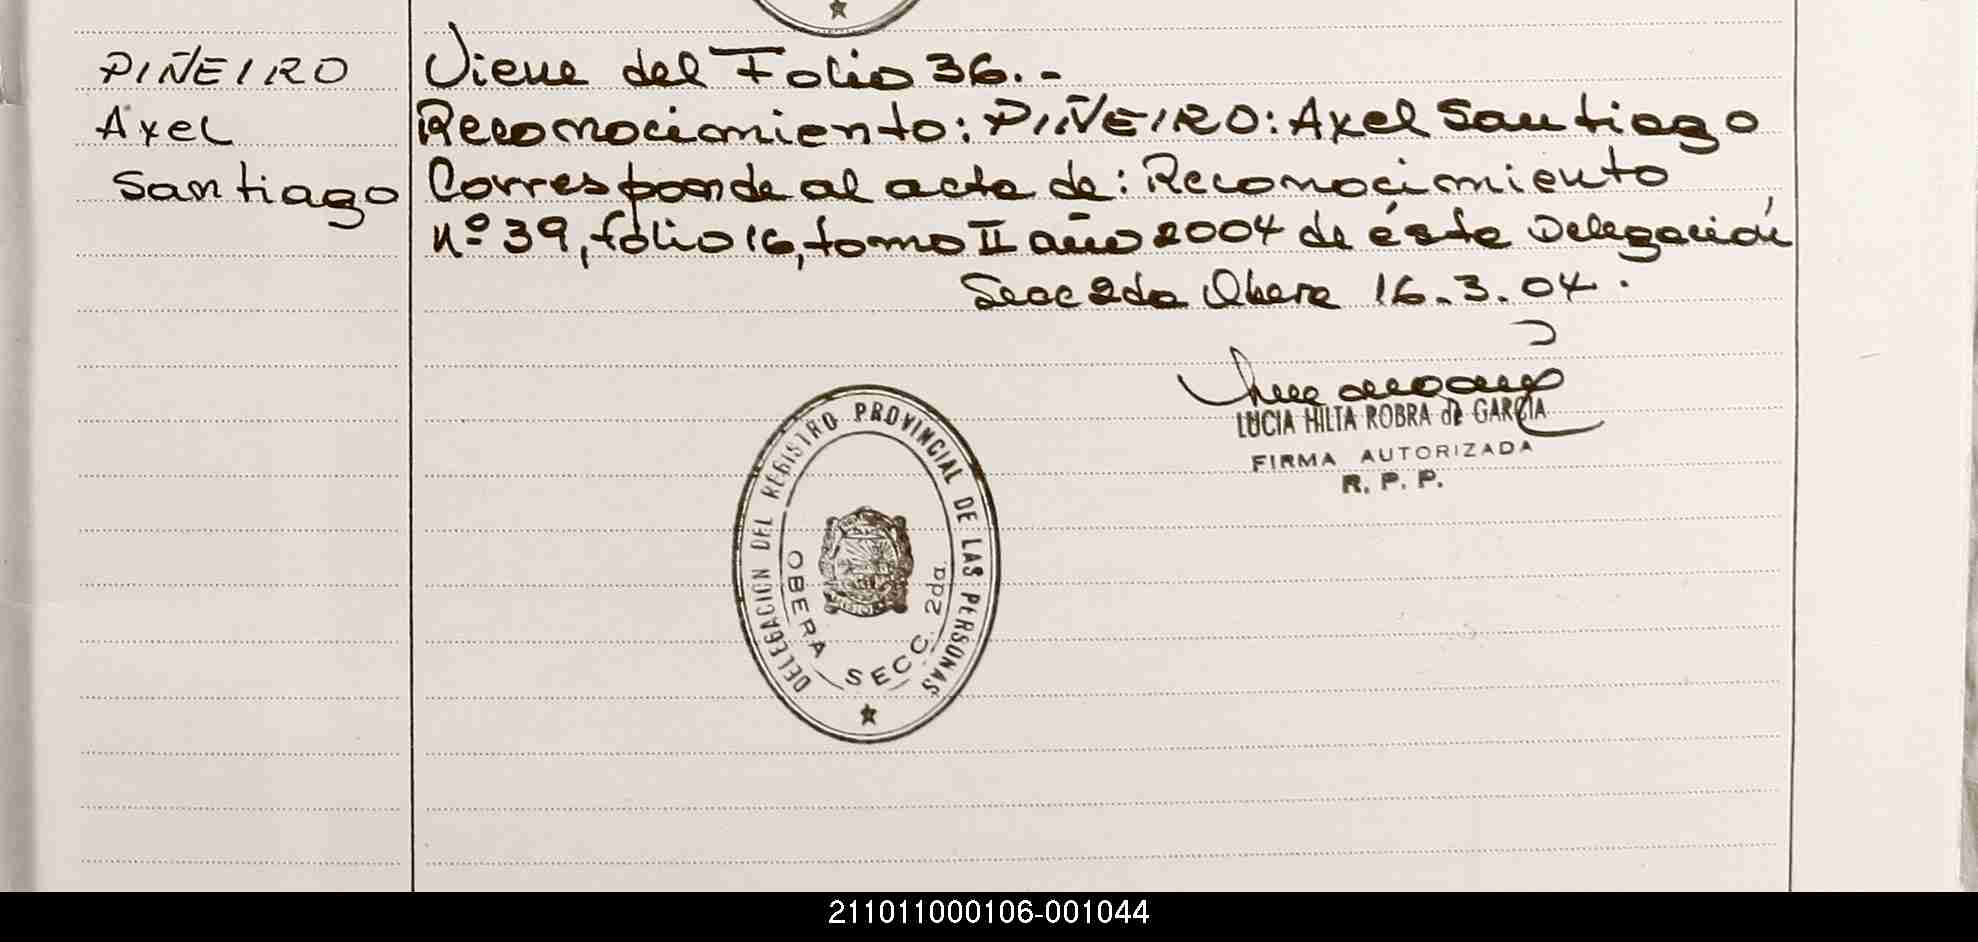 PIÑEIRO
Axel
Santiago
Viene del Folio 36.-
Reconocimiento: PIÑEIRO: Axel Santiago
Corresponde al acta de: Reconocimiento
nº 39, folio 16, tomo II año 2004 de ésta Delegación
Secc 2da Obera 16.3.04.
LUCIA HILTA ROBRA de GARCIA
FIRMA AUTORIZADA
R. P. P.
DELEGACION DEL REGISTRO PROVINCIAL DE LAS PERSONAS
OBERA SECC. 2da
211011000106-001044